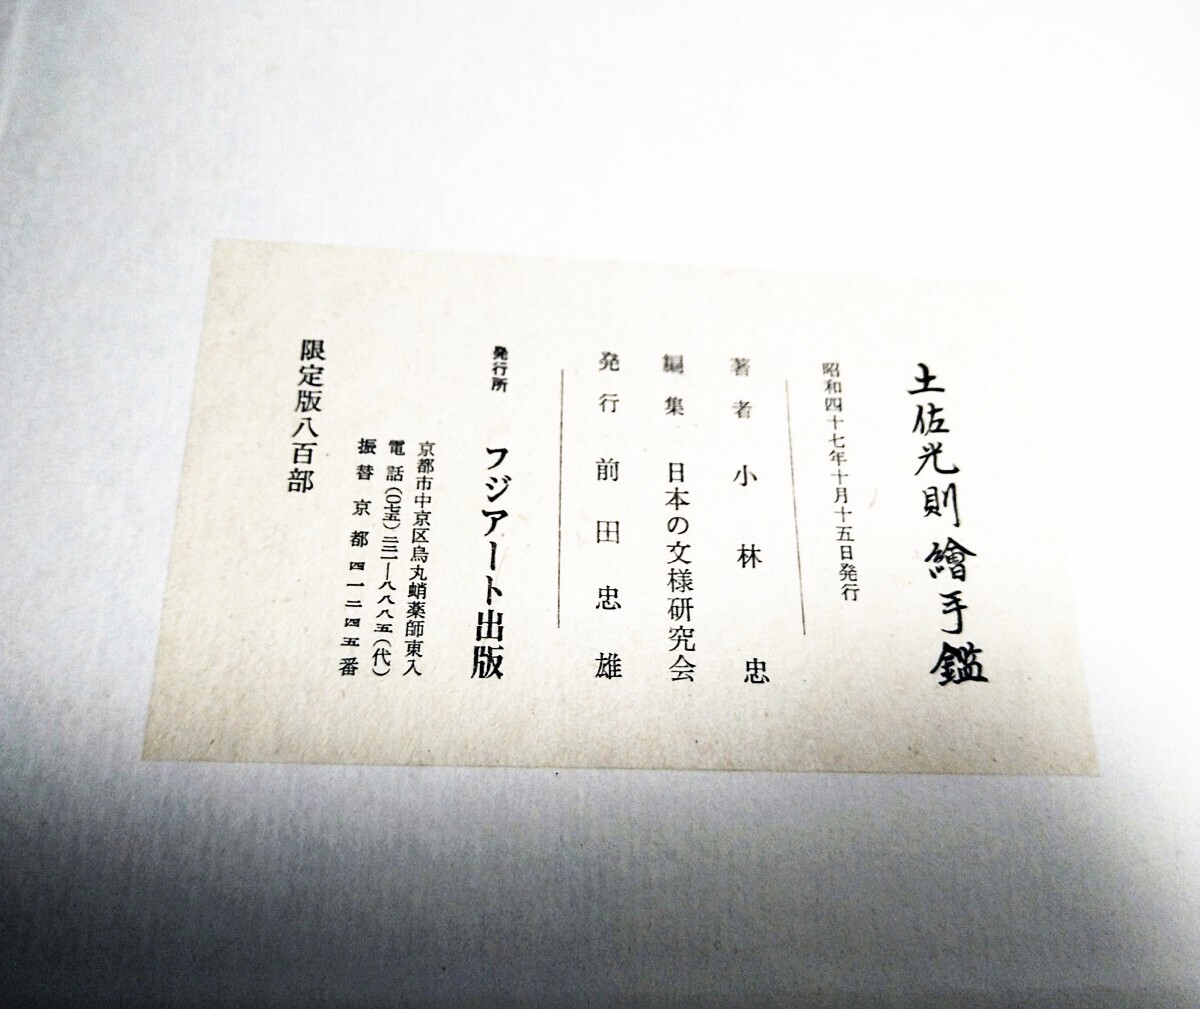 土佐光則繪手鑑
昭和四十七年十月十五日発行
著者 小林 忠
編集 日本の文様研究会
発行 前田忠雄
発行所 フジアート出版
京都市中京区烏丸蛸薬師東入
電話(〇七五)二二一―八八八五(代)
振替 京都 四一二四五番
限定版八百部